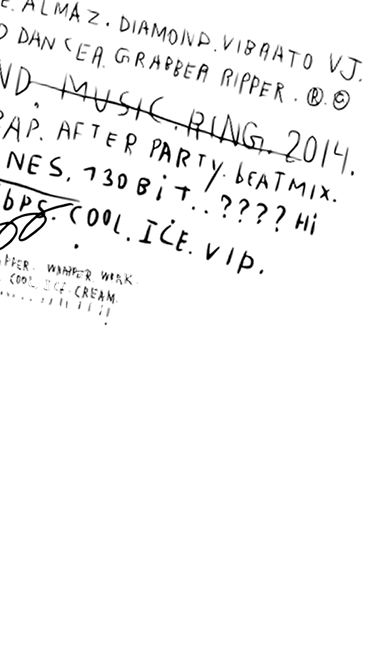 E. ALMAZ. DIAMOND. VIBRATO VJ.
O DANCER. GRABBER RIPPER. ® ©
ND. MUSIC. RING. 2014.
RAP. AFTER PARTY. bEATMIX.
NES. 730 BiT.. ???? Hi
bps. COOL. ICE. VIP.
PPER. WRAPPER WORK
COOL ICE CREAM.